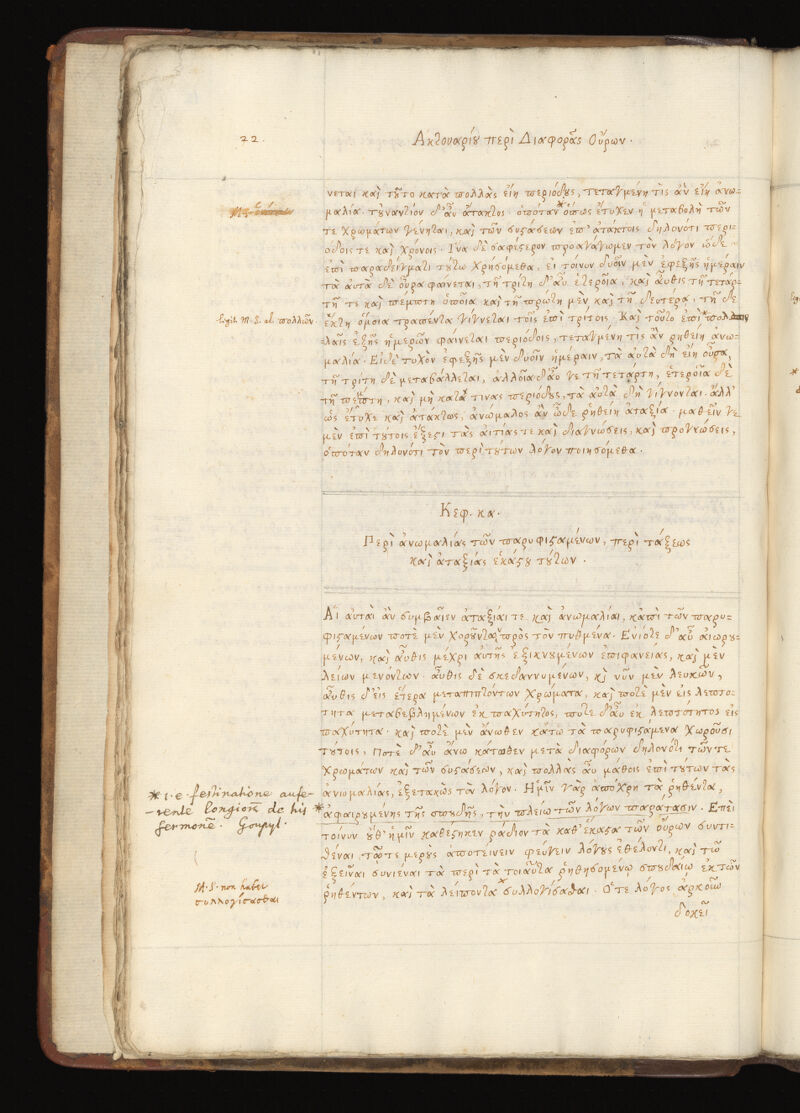 22.
Ακτουαρίου περὶ Διαφορᾶς Οὔρων.
νεται καὶ τοῦτο κατὰ πολλὰς εἴη περιόδους, τεταγμένη τὶς ἂν εἴη ἀνω-
μαλία. τοὐναντίον δ'αὖ ἄτακτος ὁπόταν * ὅπως ἔτυχεν ἡ μεταβολὴ τῶν
τε χρωμάτων γένηται, καὶ τῶν συστάσεων ἐπ' ἀτάκτοις δηλονότι περι-
όδοις τε καὶ χρόνοις. Ἵνα δὲ σαφέστερον προαγάγωμεν τὸν λόγον ὧδε
ἐπὶ παραδείγματι τούτῳ χρησόμεθα, εἰ τοίνυν δυοῖν μὲν ἐφεξῆς ἡμέραιν
τὰ αὐτὰ δὲ οὖρα φαίνεται, τῇ τρίτῃ δ'αὖ ἑτεροῖα, καὶ αὖθις τῇ τετάρ-
τῃ τε καὶ πέμπτῃ ὁποῖα καὶ τῇ πρώτῃ μὲν καὶ τῇ δευτέρᾳ, τῇ δὲ
legit. M.S. al. πολλῶν
ἕκτῃ ὅμοια τραπέντα γίγνεται τοῖς ἐπὶ τρίτοις. Καὶ τοῦτο ἐπὶ *
ἑξῆς ἡμερῶν φαίνεται περιόδοις, τεταγμένη τὶς ἂν ῥηθείη ἀνω-
μαλία. Εἰ δὲ τυχὸν ἐφεξῆς μὲν δυοῖν ἡμέραιν, τὰ αὐτὰ δὴ εἴη οὖρα,
τῇ τρίτῃ δὲ μεταβάλλεται, ἀλλοῖα δ'αὖ γε τῇ τετάρτῃ, ἑτεροῖα δὲ
τῇ πέμπτῃ, καὶ μὴ κατά τινας περιόδους, τὰ αὐτὰ δὴ γίγνονται. ἀλλ'
ὡς ἔτυχε καὶ ἀτάκτως, ἀνώμαλος ἂν ὧδε ῥηθείη ἀταξία. μαθεῖν γε
μὲν ἐπὶ τούτοις ἔξεστι τὰς αἰτίας τε καὶ διαγνώσεις, καὶ προγνώσεις,
ὁπόταν δηλονότι τὸν περὶ τούτων λόγον ποιησόμεθα.
Κεφ. κα.
Περὶ ἀνωμαλίας τῶν παρυφισταμένων, περὶ τάξεως
καὶ ἀταξίας ἑκάστου τούτων.
Αἱ αὐταὶ ἂν συμβαῖεν ἀταξίαι τε καὶ ἀνωμαλίαι, κἀπὶ τῶν παρυ-
φισταμένων ποτὲ μὲν χωρούντων πρὸς τὸν πυθμένα. Ἐνίοτε δ'αὖ αἰωρου-
μένων, καὶ αὖθις μέχρι αὐτῆς ἐξικνουμένων ἐπιφανείας, καὶ μὲν
λείων μενόντων αὖθις δὲ σκεδαννυμένων, κὶ νῦν μὲν λευκῶν,
αὖθις δ'εἰς ἕτερα μεταπιπτόντων χρώματα, καὶ ποτὲ μὲν εἰς λεπτό-
τητα μεταβεβλημένων ἐκ παχύτητος, ποτὲ δ'αὖ ἐκ λεπτότητος εἰς
παχύτητα. καὶ ποτὲ μὲν ἄνωθεν κάτω τὰ παρυφιστάμενα χωροῦσι
τούτοις, Ποτὲ δ'αὖ ἄνω κάτωθεν μετὰ διαφόρων δηλονότι τῶν τε
χρωμάτων καὶ τῶν συστάσεων, καὶ πολλὰς αὖ μάθοις ἐπὶ τούτων τὰς
ἀνωμαλίας, ἐξετακὼς τὸν λόγον. Ἡμῖν γὰρ ἀπόχρη τὰ ῥηθέντα,
* i.e. festinatione aufe-
-rente longiorē de his
sermonē. Goupyl.
* ἀφαιρουμένης τῆς σπουδῆς, τὴν πλείω τῶν λόγων παράτασιν. Ἐπεὶ
τοίνυν οὔθ' ἡμῖν καθέστηκεν ῥᾴδιον τὰ καθ' ἕκαστα τῶν οὔρων συντι-
θέναι, μέρους ἀποτείνειν φεύγειν λόγους ἐθέλοντι, καὶ τῷ
ἐξεῖναι συνιέναι τὰ περὶ τὰ τοιαῦτα ῥηθησομένῳ σπουδαίῳ ἐκ τῶν
M.S. non habet
συλλογίσασθαι
ῥηθέντων, καὶ τὰ λείποντα * συλλογίσασθαι. Ὅτε λόγος ἀρκοῦν
δοκεῖ